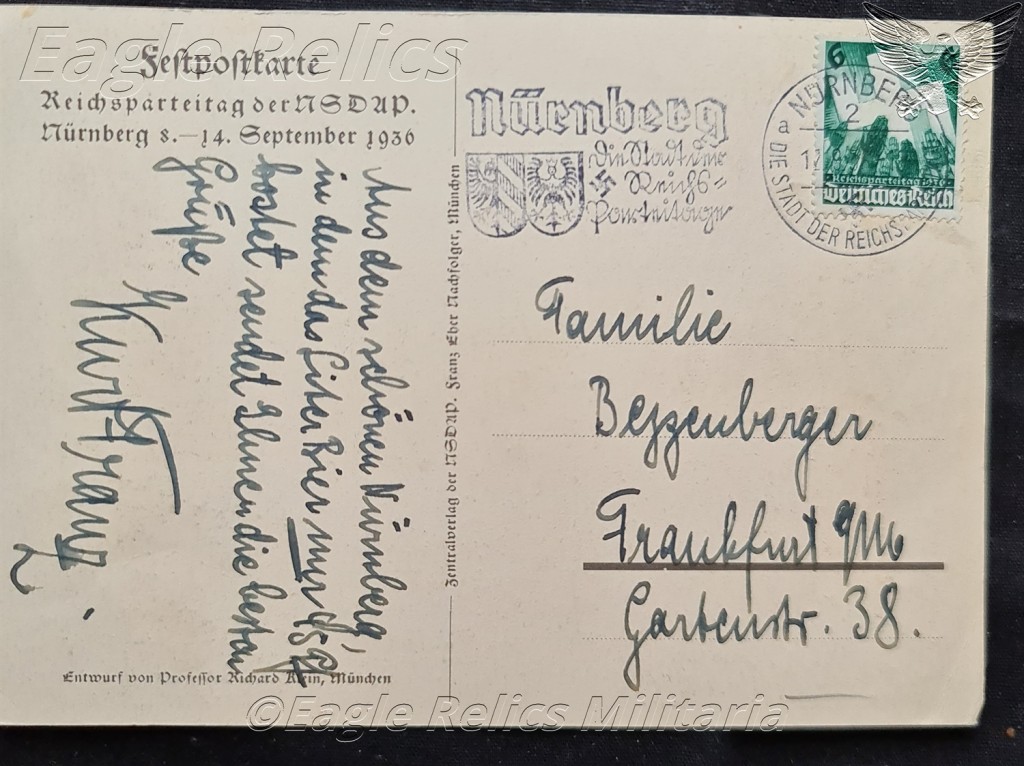 Eagle Relics
Festpostkarte
Reichsparteitag der NSDAP.
Nürnberg 8.—14. September 1936
Aus dem schönen Nürnberg,
in dem das Liter Bier nur
kostet sendet Ihnen die besten
Grüße
Kurt Franz.
Entwurf von Professor Richard Klein, München
Zentralverlag der NSDAP. Franz Eher Nachfolger, München
Nürnberg
Die Stadt der
Reichs=
Parteitage
NÜRNBERG
2
a
DIE STADT DER REICHS
6
Reichsparteitag 1936
Deutsches Reich
Familie
Bezzenberger
Frankfurt a/M
Gartenstr. 38.
©Eagle Relics Militaria